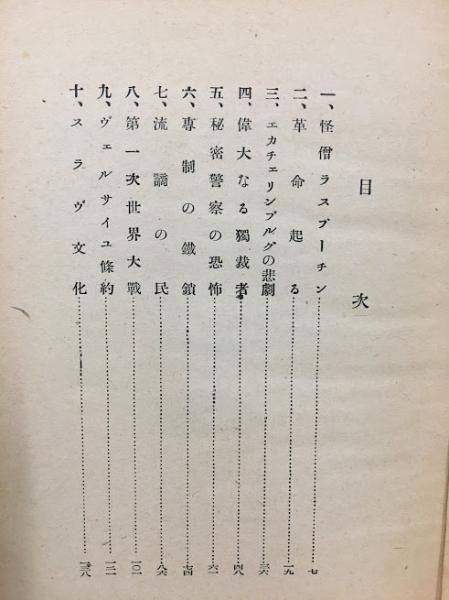 目次
一、怪僧ラスプーチン……七
二、革命起る……一九
三、エカチェリンブルグの悲劇……三六
四、偉大なる獨裁者……四八
五、秘密警察の恐怖……六一
六、專制の鐵鎖……七四
七、流謫の民……八六
八、第一次世界大戰……一〇一
九、ヴェルサイユ條約……一二一
十、スラヴ文化……